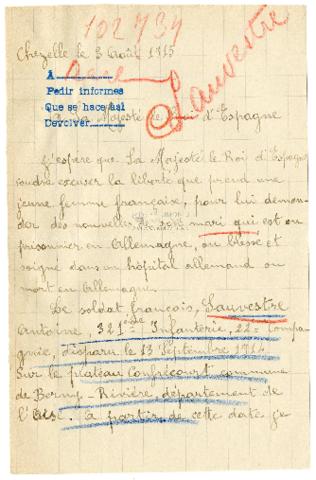 102734
Sauvestre
Chezelle le 3 Août 1915
À
Pedir informes
Que se hace aqi
Devolver
A Sa Majesté le Roi d'Espagne
J'espère que La Majesté le Roi d'Espagne
voudra excuser la liberté que prend une
jeune femme française, pour lui deman-
der des nouvelles de son mari qui est ou
prisonnier en Allemagne, ou blessé et
soigné dans un hôpital allemand ou
mort en Allemagne.
Le soldat français, Sauvestre
Antoine, 321ème Infanterie, 22e Compa-
gnie, disparu le 13 Septembre 1914
Sur le plateau Confrécourt commune
de Berny-Rivière, département de
l'Aisne. A partir de cette date je